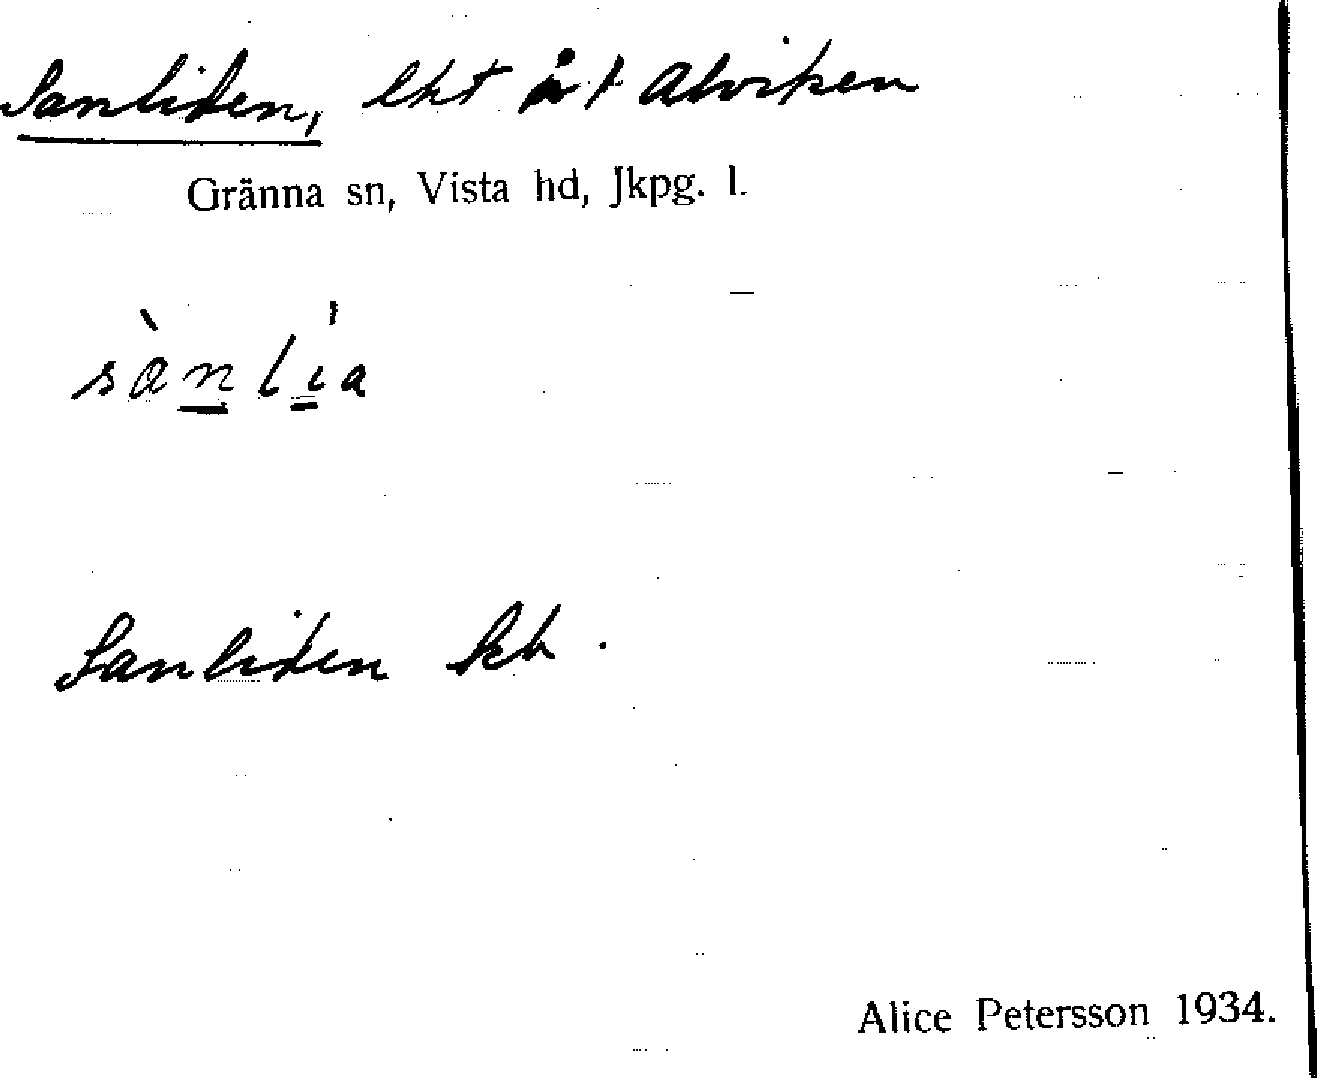 Sanliden, lht åt Alviken
Gränna sn, Vista hd, Jkpg. l.
sànlia
Sanliden
Alice Petersson 1934.